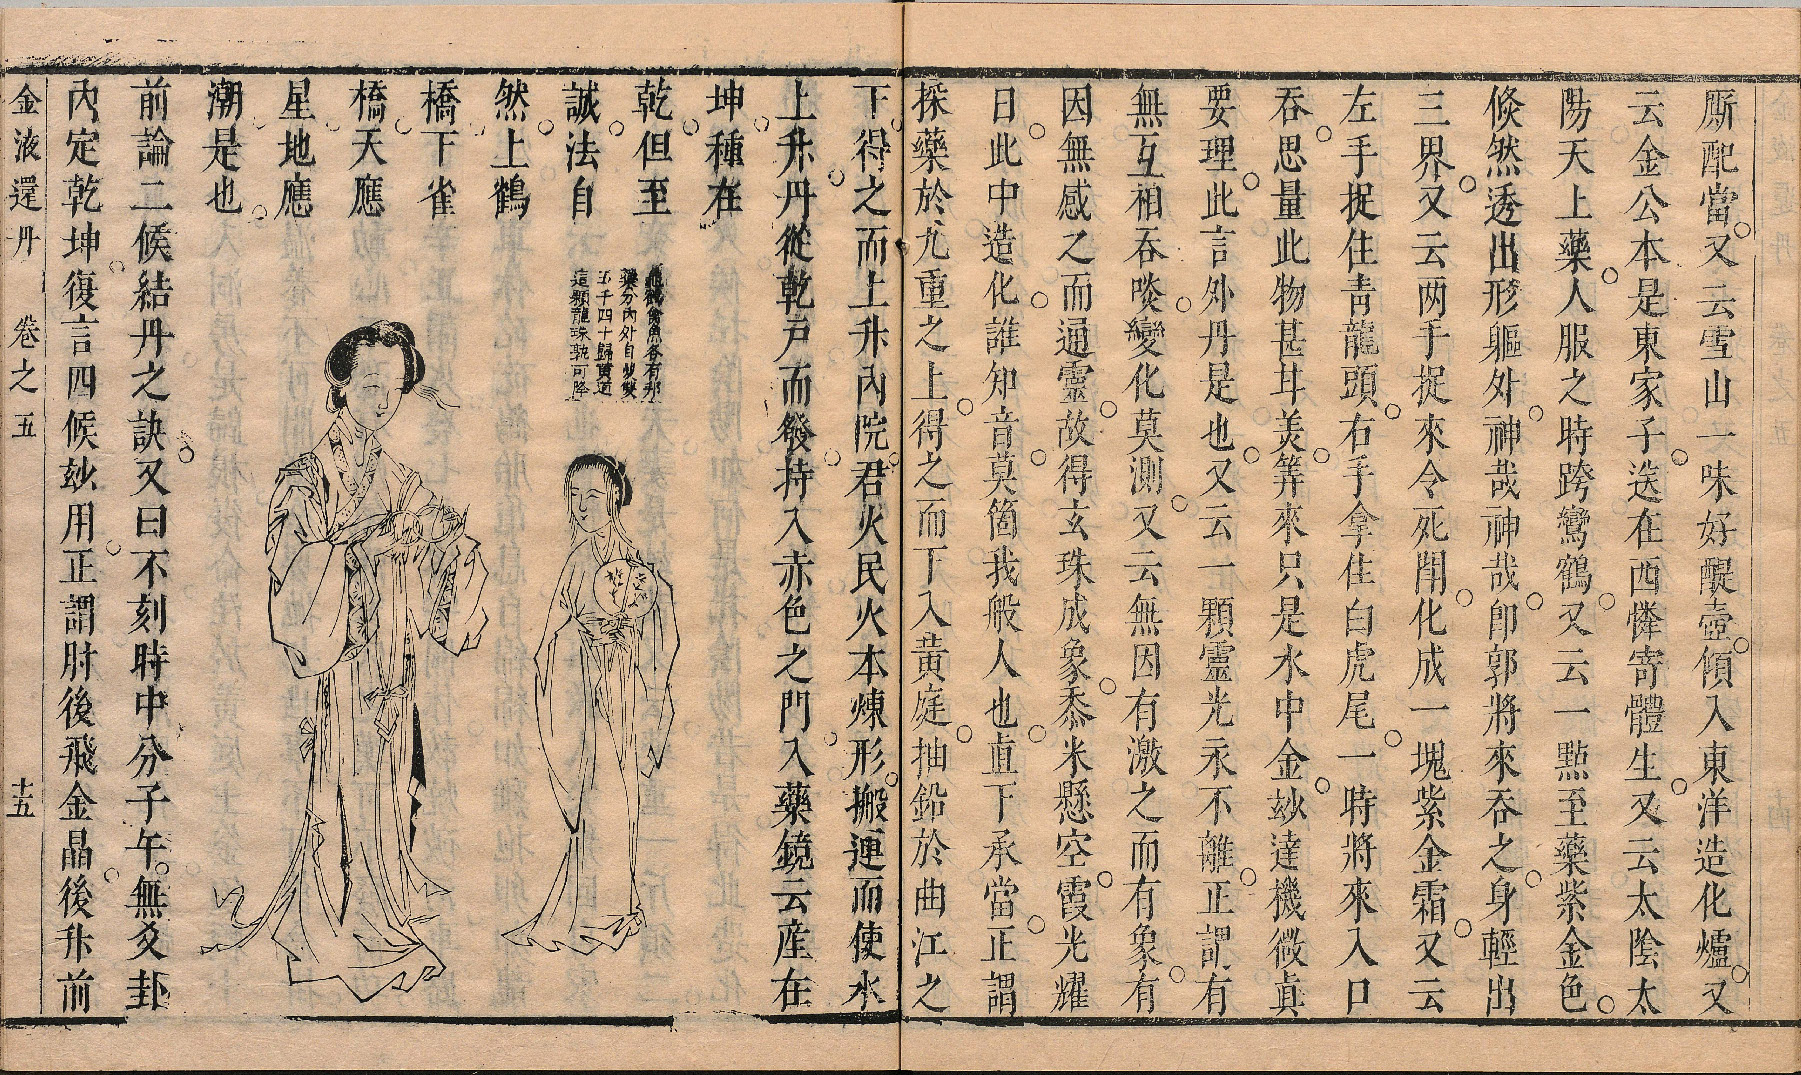 厮配當又云雪山一味好醍壺傾入東洋造化爐又
云金公本是東家子送在西憐寄體生又云太陰太
陽天上藥人服之時跨鸞鶴又云一點至藥紫金色
倐然透出形軀外神哉神哉卽郭將來吞之身輕出
三界又云两手捉來令死鬪化成一塊紫金霜又云
左手捉住青龍頭右手拿住白虎尾一時將來入口
吞思量此物甚甘美筭來只是水中金玅達機微眞
要理此言外丹是也又云一顆靈光永不離正謂有
無互相吞啖變化莫測又云無因有激之而有象有
因無感之而通靈故得玄珠成象黍米懸空霞光耀
日此中造化誰知音莫箇我般人也直下承當正謂
採藥於九重之上得之而下入黄庭抽鉛於曲江之
下得之而上升內院君火民火本煉形搬運而使水
上升丹從乾戸而發持入赤色之門入藥鏡云産在
坤種在
乾但至
誠法自
然上鵲
橋下雀
橋天應
星地應
潮是也
禽魚各有
藥分內外自
五千四十歸黄道
這顆龍珠孰可降
前論二候結丹之訣又曰不刻時中分子午無爻卦
內定乾坤復言四候玅用正謂肘後飛金晶後升前
金液還丹 卷之五 十五